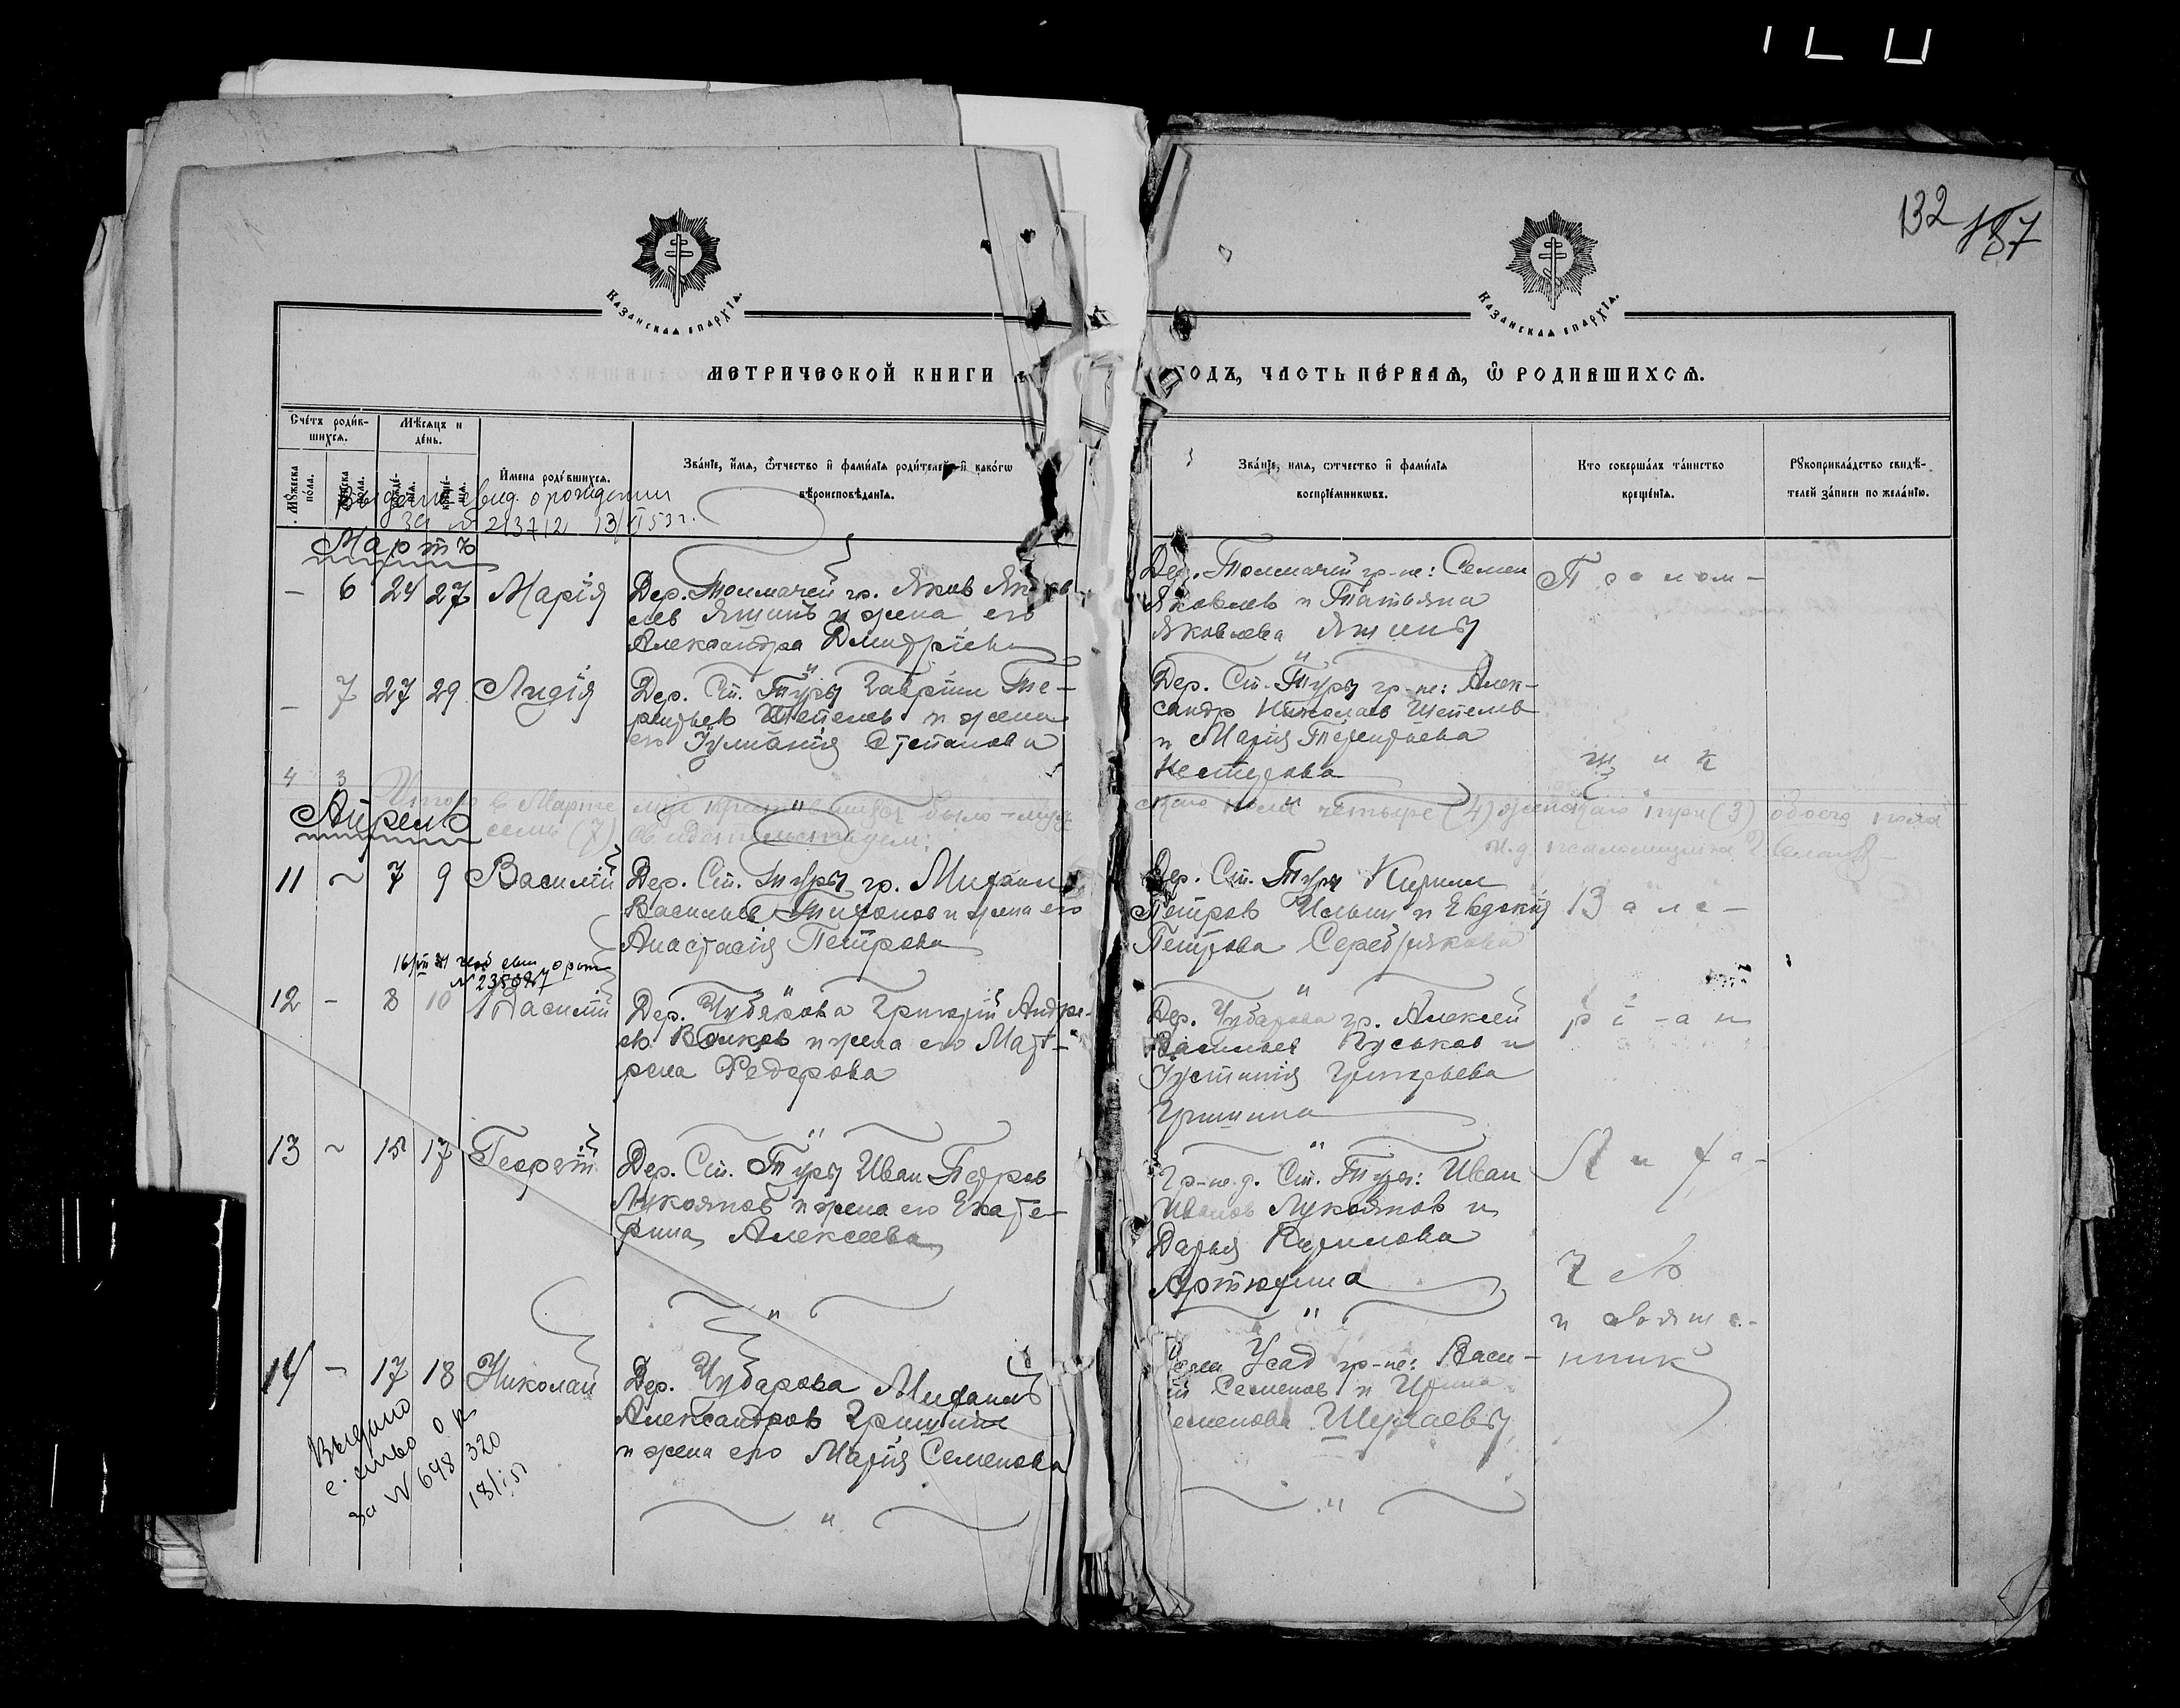 132 157
Казанская епархїя.
Казанская епархїя.
МЕТРИЧЕСКОЙ КНИГИ
ГОДЪ, ЧАСТЬ ПЕРВАЯ, Ѡ РОДИВШИХСЯ.
Счетъ родив-
шихся.
Мѣсяцъ и
день.
Мужеска
пола.
Имена родившихся.
Званїе, имя, отчество и фамилїя родителей и какогѡ
вѣроисповѣданїя.
Званїе, имя, отчество и фамилїя
воспрїемниковъ.
Кто совершалъ таинство
крещенїя.
Рукоприкладство свидѣ-
телей записи по желанїю.
свид. о рождении
за № 213712 13/VI 53 г.
Мартъ
– 6 24 27 Марія
Дер. Толмачей гр. Яков
лев Яшинъ и жена его
Александра Дмитріева
Дер. Толмачей гр-не: Семен
Яковлев и Татьяна
Яковлева Яшины
Псалом-
– 7 27 29 Лидія
Дер. Ст. Туры Гаврiил Те-
рентьев Шепелев и жена
его Іуліанія Степанова
Дер. Ст. Туры гр-не: Алек-
сандр Николаев Шепелев
и Марія Терентьева
Нестерова
щик
4 3
Итого в Марте
было
семь (7)
четыре (4) женскаго три (3) обоего пола
и.д. псаломщика
Апрель
11 ~ 7 9 Василій
Дер. Ст. Туры гр. Михаил
Васильев Тихонов и жена его
Анастасія Петрова
Дер. Ст. Туры Кирилл
Петров Ильин и Евдокія
Петрова Серебрякова
Вале-
12 – 8 10 Василій
Дер. Чубарова Григорій Андре-
ев Волков и жена его Мат-
рена Федорова
Дер. Чубарова гр. Алексей
Васильев Гуськов и
Іустинія Григорьева
Гришина
ріан
13 ~ 15 17 Георгій
Дер. Ст. Туры Иван Петров
Лукоянов и жена его Екате-
рина Алексеева
Гр-не д. Ст. Туры: Иван
Иванов Лукоянов и
Дарья Кирилова
Артюхина
Лиха-
чев
и свяще-
нник
14 – 17 18 Николай
Дер. Чубарова Михаил
Александров Гришин
и жена его Марія Семенова
Усад гр-не: Васи-
ій Семенов и Ирина
еменова Шулаевы
Выдано
о р
за № 648320
18/I 51